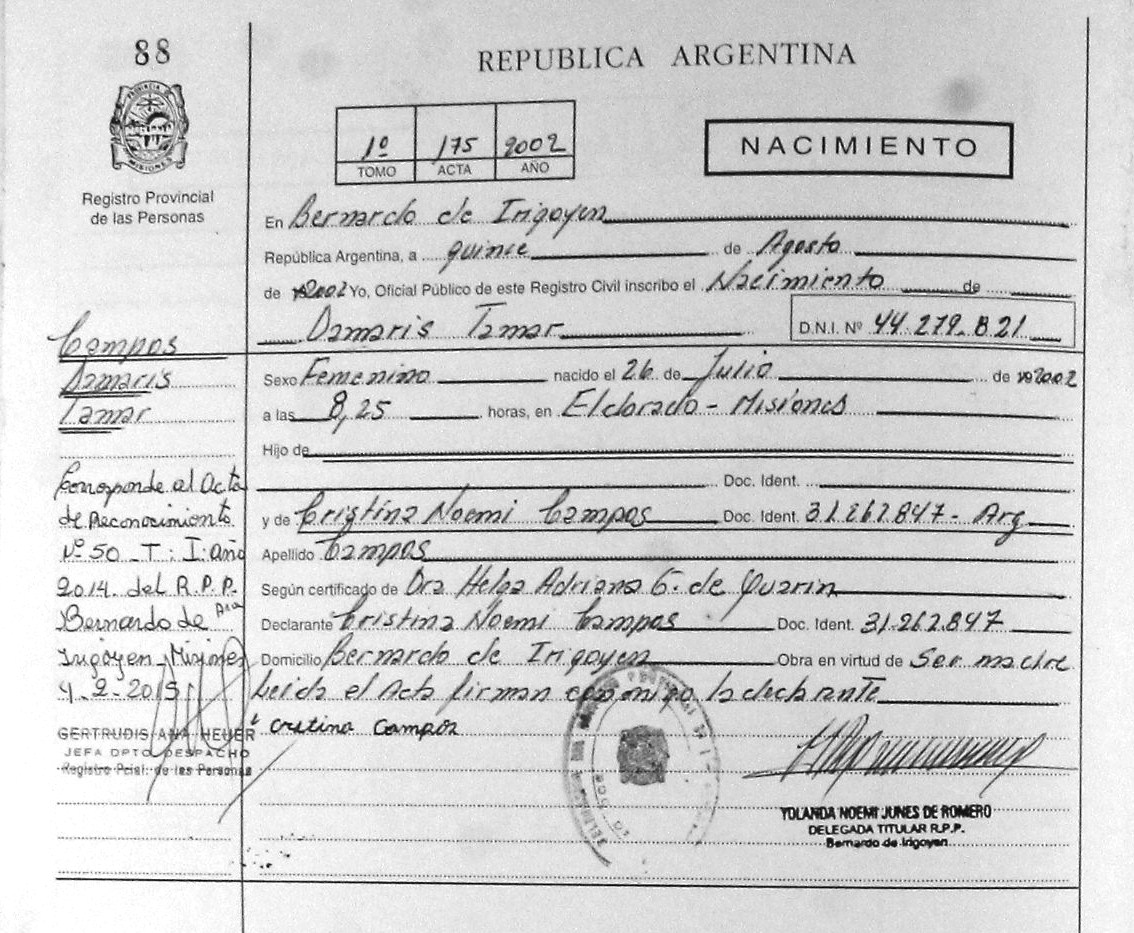 88
REPUBLICA ARGENTINA
PROVINCIA DE
MISIONES
Registro Provincial
de las Personas
1º 175 2002
TOMO ACTA AÑO
NACIMIENTO
En Bernardo de Irigoyen
República Argentina, a quince de Agosto
de 2002 Yo, Oficial Público de este Registro Civil inscribo el Nacimiento de
Damaris Tamar
D.N.I. Nº 44.279.821
Campos
Damaris
Tamar
Sexo Femenino nacido el 26 de Julio de 2002
a las 8,25 horas, en Eldorado - Misiones
Hijo de
Doc. Ident.
y de Cristina Noemi Campos Doc. Ident. 31.262.847 - Arg
Apellido Campos
Según certificado de Dra Helga Adriana G. de Quarin
Declarante Cristina Noemi Campos Doc. Ident. 31.262.847
Domicilio Bernardo de Irigoyen Obra en virtud de Ser madre
Leida el Acta firman conmigo la declarante
Cristina Campos
Corresponde al Acta
de Reconocimiento
Nº 50 - T: I: año
2014. del R.P.P.
Bernardo de
Irigoyen Misiones
4-2-2015
GERTRUDIS ANA HEUER
JEFA DPTO DESPACHO
Registro Pcial. de las Personas
YOLANDA NOEMI JUNES DE ROMERO
DELEGADA TITULAR R.P.P.
Bernardo de Irigoyen